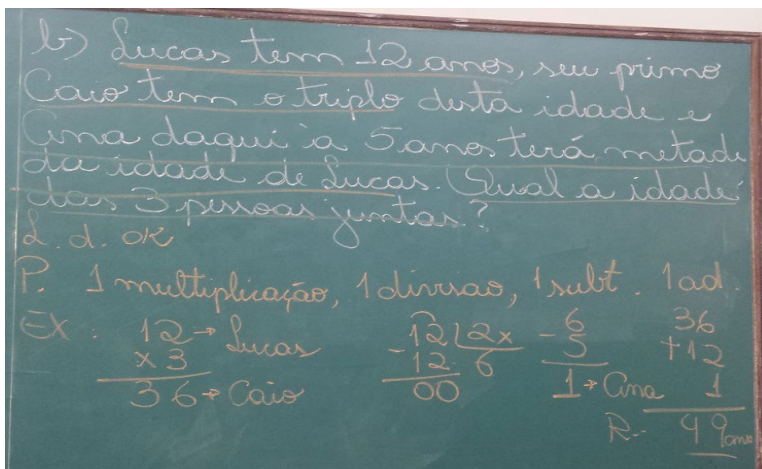 b) Lucas tem 12 anos, seu primo
Caio tem o triplo desta idade e
Ana daqui a 5 anos terá metade
da idade de Lucas. Qual a idade
das 3 pessoas juntas?
L. d. OK
P. 1 multiplicação, 1 divisao, 1 subt. 1 ad.
EX: 12 → Lucas 12 | 2x - 6 36
x 3 - 12 6 5 + 12
36 → Caio 00 1 → Ana 1
R.- 49 anos